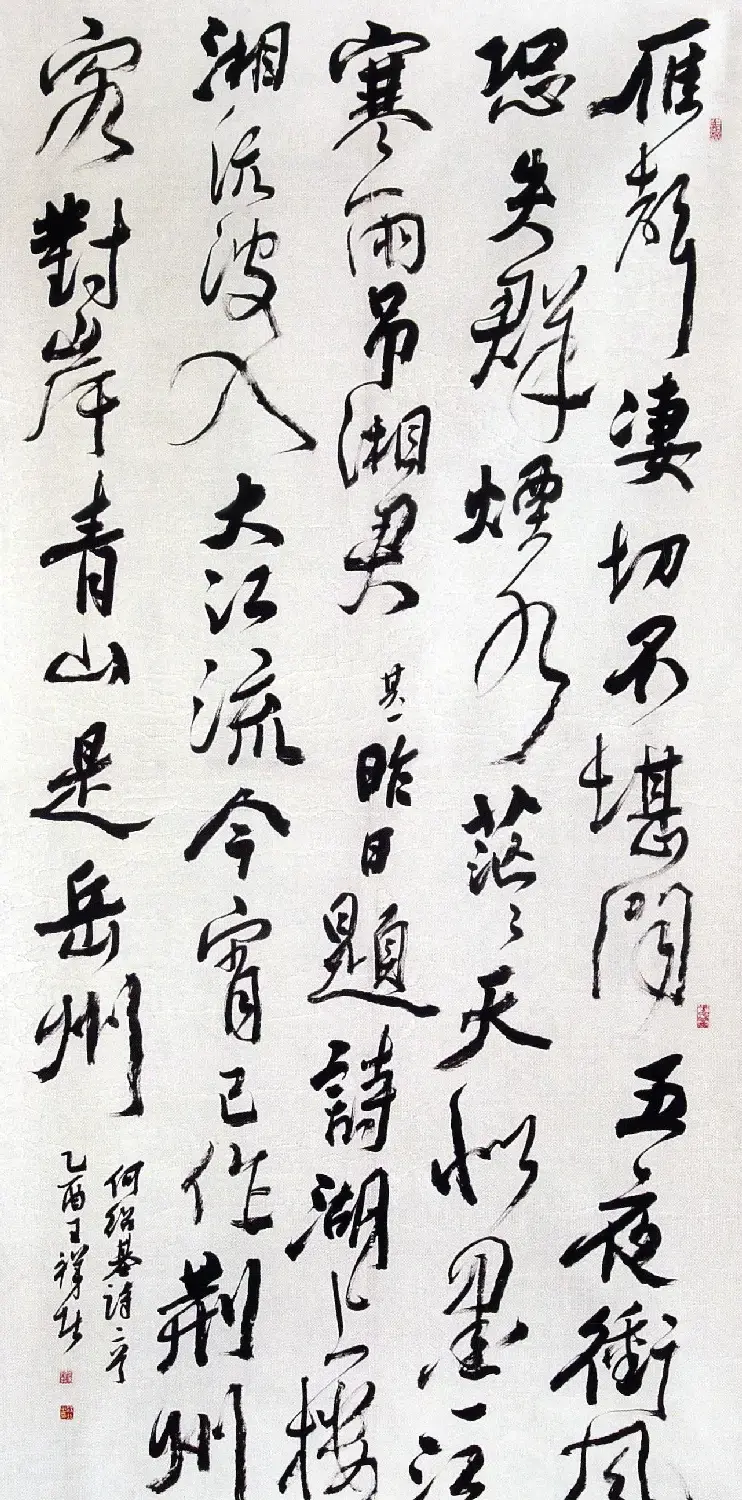 雁聲淒切不堪聞五夜衝風
恐失群煙水茫〻天似墨一江
寒雨吊湘君其一昨日題詩湖上樓
湘流波入大江流今宵已作荆州
客對岸青山是岳州
何紹基詩二首
乙酉王祥